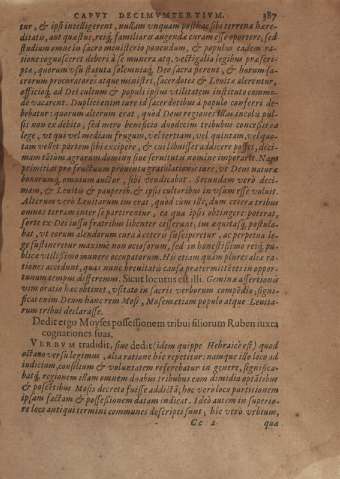 CAPVT DECIMVMTERTIVM. 387
tur, & ipsi intelligerent, nullam unquam posthac sibi terrena hære-
ditatis, aut quæstus, reiq; familiaris augendæ curam esse oportere, sed
studium omne in sacro ministerio ponendum, & populus eadem ra-
tione cognosceret deberi à se munera atq; vectigalia legibus præscri-
pta, quorum usu statuta solennitaq; Deo sacra fierent, & horum sa-
crorum procuratores atque ministri, sacerdotes & Leuitæ alerentur,
officioq; ad Dei cultum & populi ipsius vtilitatem instituto commo-
de vacarent. Duplici enim iure id sacerdotibus à populo conferri de-
bebatur: quorum alterum erat, quod Deus regionem illam incola pul-
sis non ex debito, sed mero beneficio duodecim tribubus concessit ea
lege, vt que vel mediam frugum, vel tertiam, vel quintam, vel quo-
tam vellet partem sibi excipere, & cui libuisset addicere posset, deci-
mam totum agrorum dominus siue seruitutis nomine imperarit. Nam
primitias pro fructuum prouentu gratulationis iure, vt Deus naturæ
bonorumq; omnium auctor, sibi vendicabat. Secundum verò deci-
mam, & Leuitis & pauperib. & ipsis cultoribus in vsum esse voluit.
Alterum verò Leuitarum ius erat, quòd cùm illis, dum cetera tribus
omnes terram inter se partirentur, ea qua ipsis obtingere poterat,
sorte ex Dei iussu fratribus libenter cessissent, ius æquitasq; postula-
bat, vt eorum alendorum cura à ceteris susciperetur. ac perpetua le-
ge sustineretur maximè non otiosorum, sed in honestissimo reiq; pu-
blicæ vtilissimo munere occupatorum. His etiam quàm plures aliæ ra-
tiones accedunt, quas nunc breuitatis causa prætermittétes in oppor-
tunum tempus differimus. Sicut locutus est illi. Gemina assertionis
vim oratio hæc obtinet, vsitato in sacris verborum compêdio, signi-
ficat enim Deum hanc rem Mosi, Mosem etiam populo atque Leuita-
rum tribui declarasse.
Dedit ergo Moyses possessionem tribui filiorum Ruben iuxta
cognationes suas.
VERBVM tradidit, siue dedit (idem quippe Hebraicè est) quod
octauo versu legimus, alia ratione hîc repetitur: namque illo loco ad
iudicium, consilium & voluntatem referebatur in genere, significa-
batq; regionem illam omnem duabus tribubus cum dimidia optatibus
& poscentibus Mosis decreto fuisse addictā, hoc verò loco partitionem
ipsam factam & possessionem datam indicat. Ideò autem in superio-
re loco antiqui termini communes descripti sunt, hic verò vrbium,
Cc 2 quæ